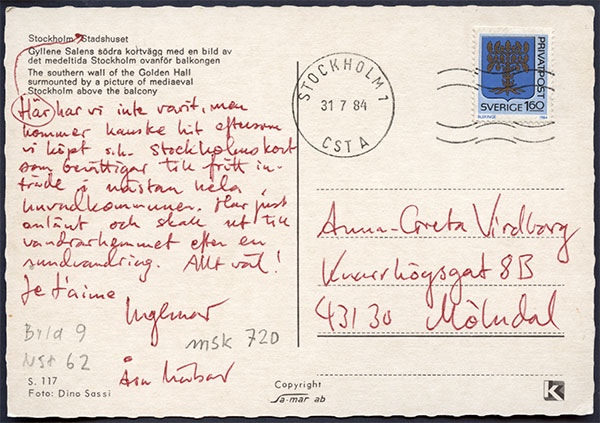 Stockholm Stadshuset
Gyllene Salens södra kortvägg med en bild av
det medeltida Stockholm ovanför balkongen
The southern wall of the Golden Hall
surmounted by a picture of mediaeval
Stockholm above the balcony
Här har vi inte varit, men
kommer kanske hit eftersom
vi köpt s.k. Stockholmskort
som berättigar till fritt in-
träde i nästan hela
huvudkommunen. Har just
anlänt och skall ut till
vandrarhemmet efter en
rundvandring. Allt väl!
Je t'aime
Ingemar
Bild 9
msk 720
NSt 62
Åsa
S. 117
Foto: Dino Sassi
STOCKHOLM 1
31 7 84
CST A
PRIVATPOST
SVERIGE 160
BLEKINGE
1984
Anna-Greta Virdborg
Kvarnhögsgat 8B
431 30 Mölndal
Copyright
Sa-mar ab
K